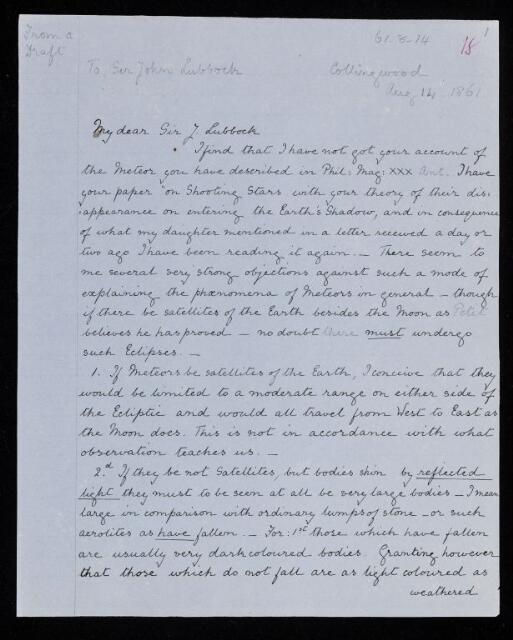 From a
Draft
61.8.14
18
1
To, Sir John Lubbock
Collingwood
Aug 14 1861
My dear Sir J. Lubbock
I find that I have not got your account of
the Meteor you have described in Phil: Mag: XXX Ant. I have
your paper "on Shooting Stars with your theory of their dis:
:appearance on entering the Earth's Shadow, and in consequence
of what my daughter mentioned in a letter received a day or
two ago I have been reading it again. — There seem to
me several very strong objections against such a mode of
explaining the phœnomena of Meteors in general — though
if there be satellites of the Earth besides the Moon as Petit
believes he has proved — no doubt there must undergo
such Eclipses. —
1. If Meteors be satellites of the Earth, I conceive that they
would be limited to a moderate range on either side of
the Ecliptic and would all travel from West to East as
the Moon does. This is not in accordance with what
observation teaches us. —
2.d If they be not Satellites, but bodies shin by reflected
light they must to be seen at all be very large bodies — I mean
large in comparison with ordinary lumps of stone — or such
aerolites as have fallen. — For: 1st those which have fallen
are usually very dark coloured bodies. Granting however
that those which do not fall are as light coloured as
weathered